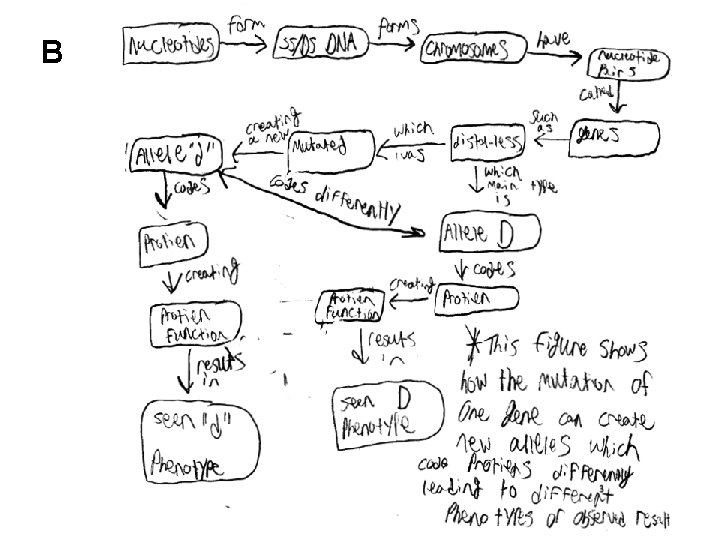 B
nucleotides
form
SS/DS DNA
forms
chromosomes
have
nucleotide
Pairs
called
genes
such
as
distal-less
which
was
Mutated
creating
a new
Allele "d"
codes
codes differently
which
main type
is
Allele D
codes
Protien
creating
Protien
Function
results
in
seen D
Phenotype
Protien
creating
Protien
Function
results
in
seen "d"
Phenotype
*This Figure shows
how the mutation of
one gene can create
new alleles which
code Protiens differently
leading to different
Phenotypes or observed result